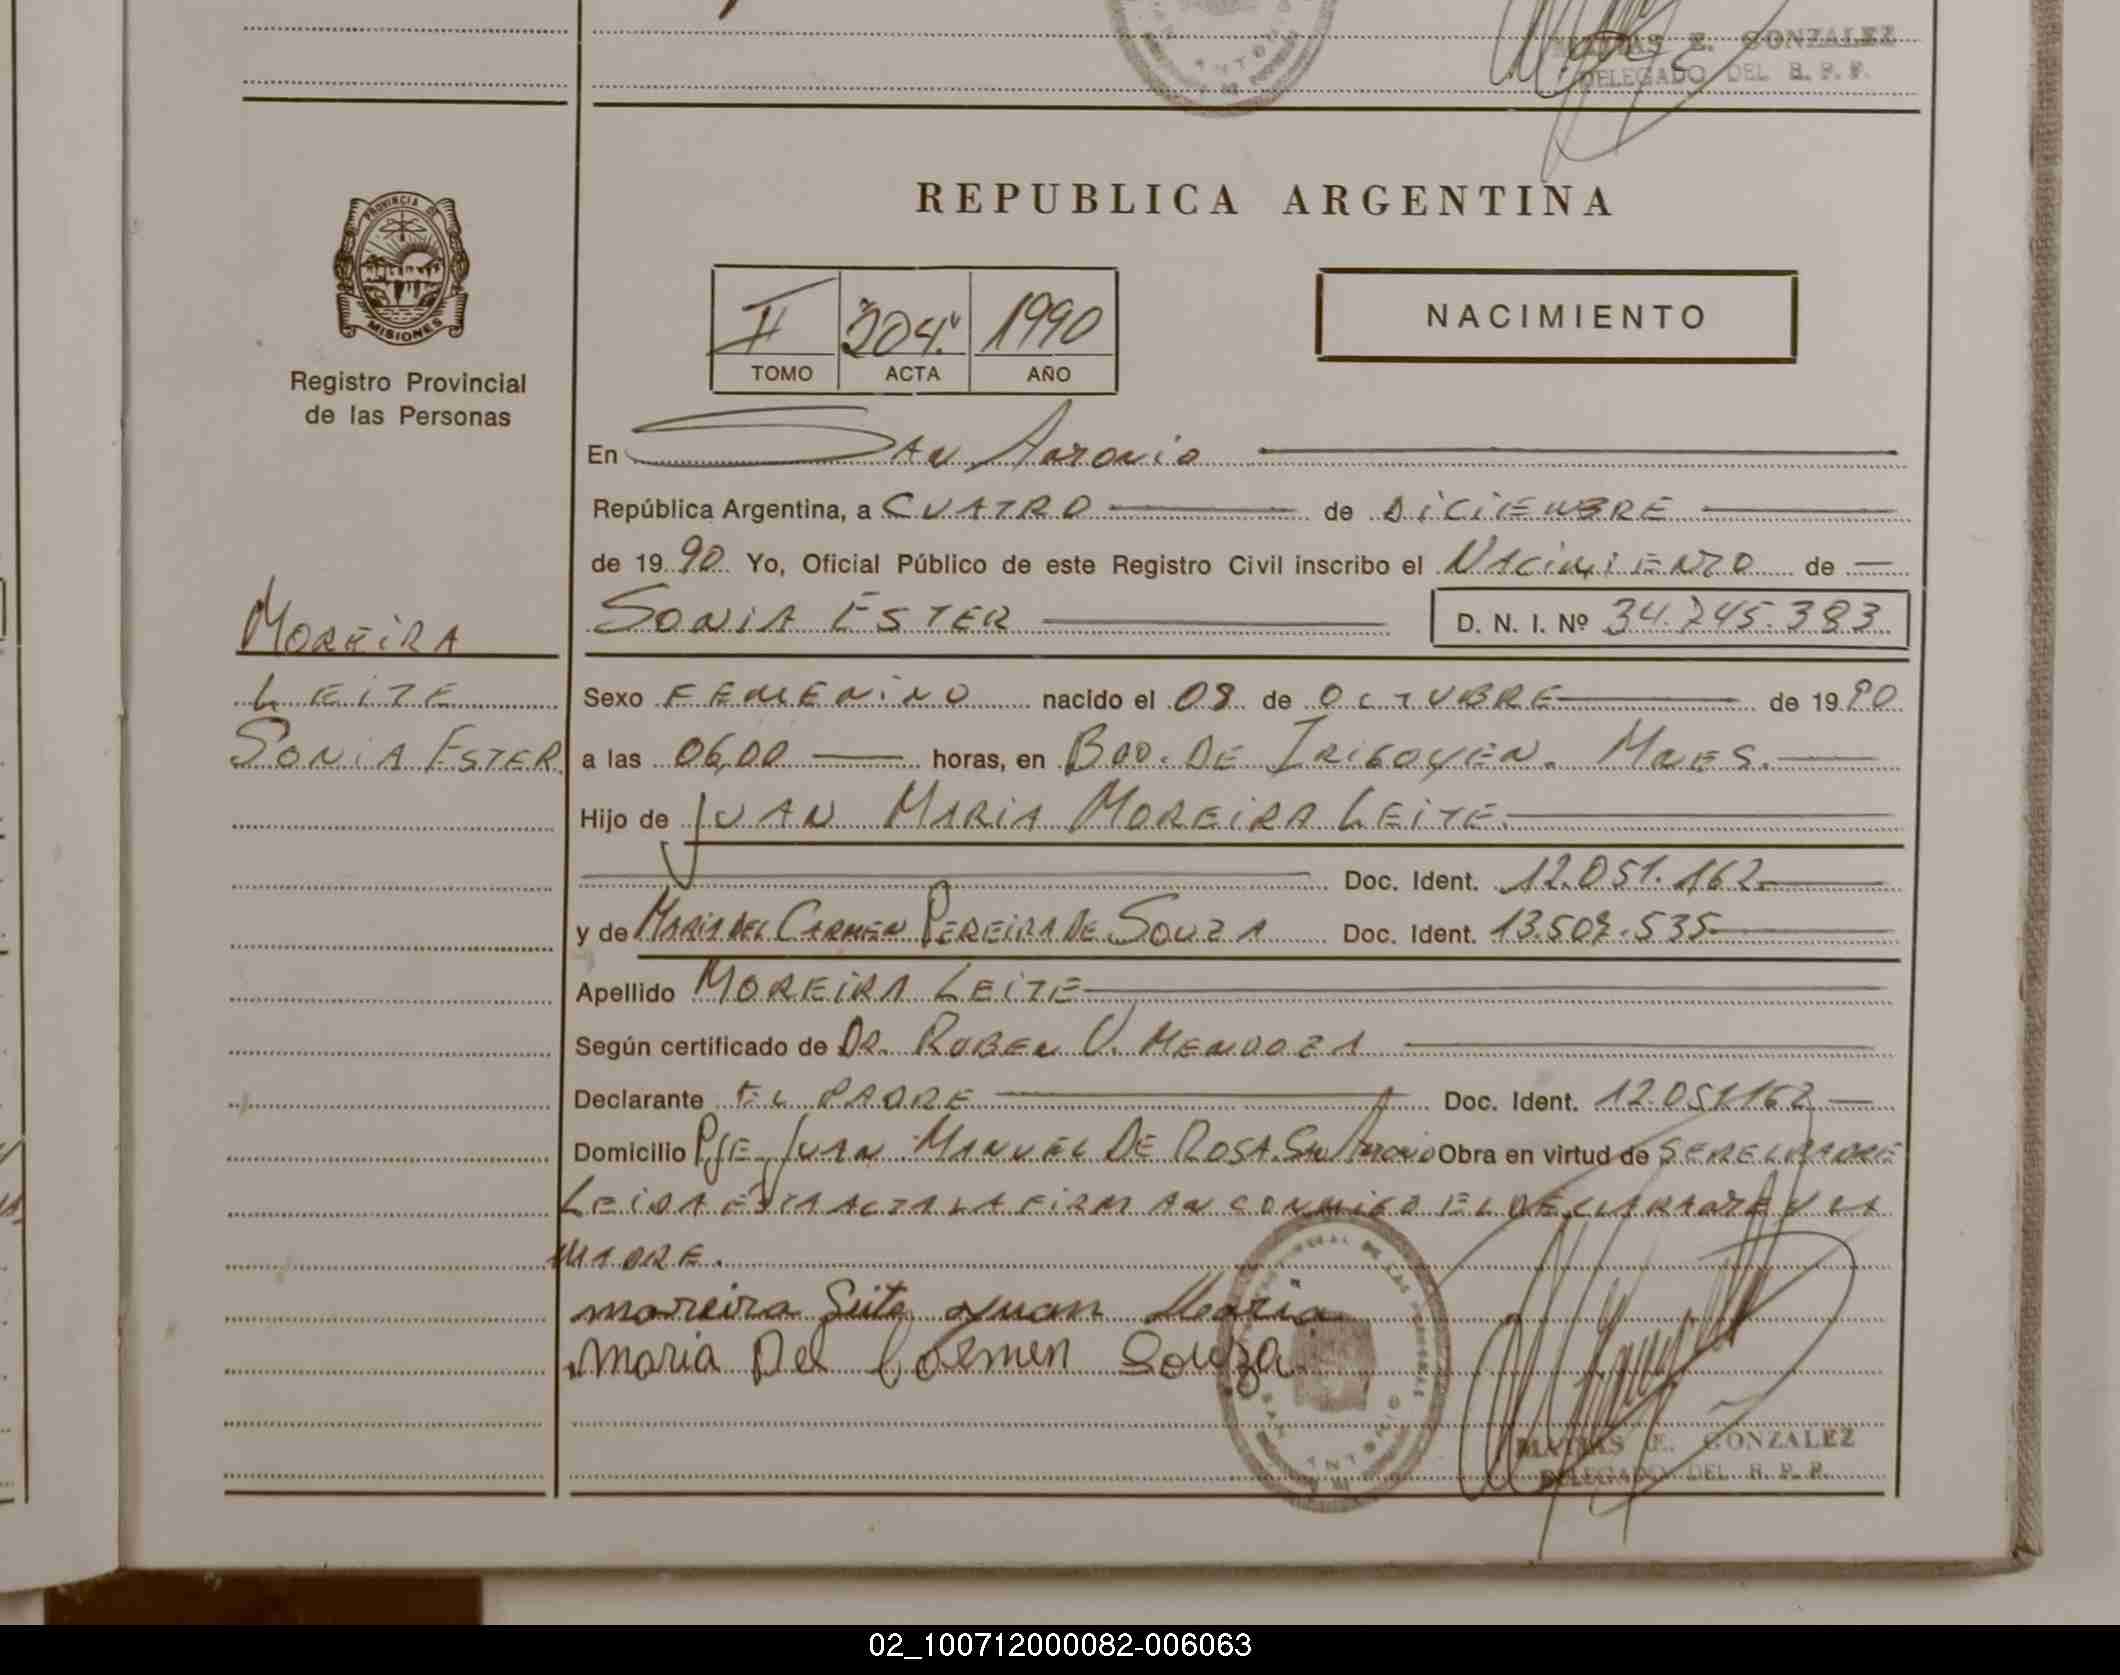 MATIAS E. GONZALEZ
DELEGADO DEL R. P. P.
PROVINCIA DE
MISIONES
Registro Provincial
de las Personas
REPUBLICA ARGENTINA
II 204 1990
TOMO ACTA AÑO
NACIMIENTO
En SAN ANTONIO
República Argentina, a CUATRO de DICIEMBRE
de 1990 Yo, Oficial Público de este Registro Civil inscribo el NACIMIENTO de
SONIA ESTER D. N. I. Nº 34.745.383
MOREIRA
LEITE
SONIA ESTER
Sexo FEMENINO nacido el 08 de OCTUBRE de 1990
a las 06,00 horas, en BDO. DE IRIGOYEN. MNES.
Hijo de JUAN MARIA MOREIRA LEITE.
Doc. Ident. 12.051.162
y de MARIA DEL CARMEN PEREIRA DE SOUZA Doc. Ident. 13.507.535
Apellido MOREIRA LEITE
Según certificado de DR. RUBEN V. MENDOZA
Declarante EL PADRE Doc. Ident. 12.051.162
Domicilio PJE JUAN MANUEL DE ROSA. SAN ANTONIO Obra en virtud de SER EL PADRE
LEIDA ESTA ACTA LA FIRMAN CONMIGO EL DECLARANTE Y LA
MADRE.
moreira Leite Juan Maria
maria Del Carmen Souza
MATIAS E. GONZALEZ
DELEGADO DEL R. P. P.
02_100712000082-006063